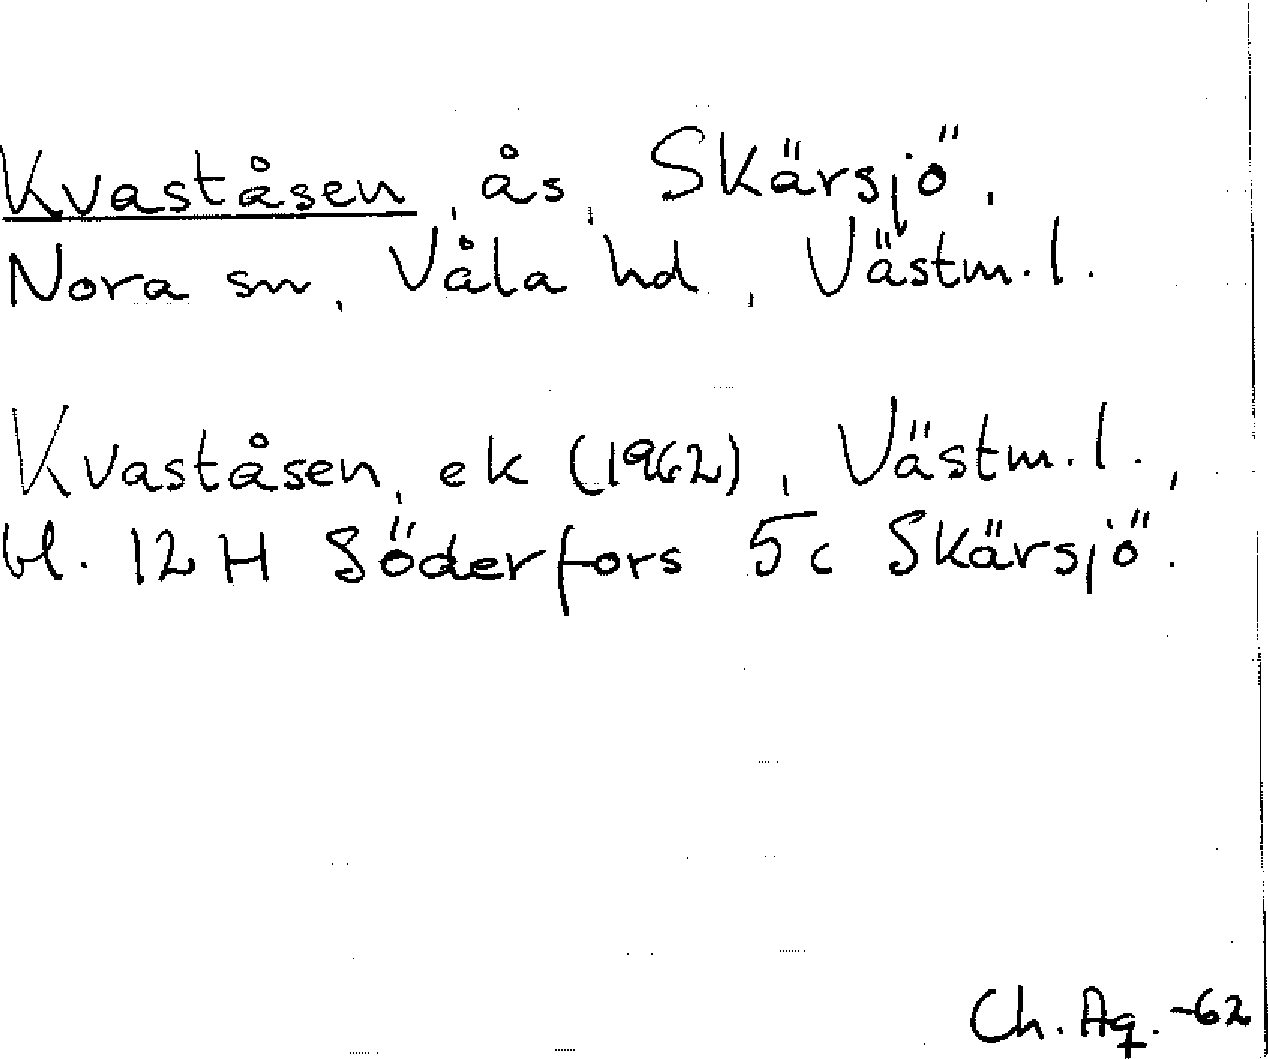 Kvaståsen, ås, Skärsjö,
Nora sn, Våla hd, Västm. l.
Kvaståsen, ek (1962), Västm. l.,
bl. 12 H Söderfors 5c Skärsjö.
Ch. Aq. -62